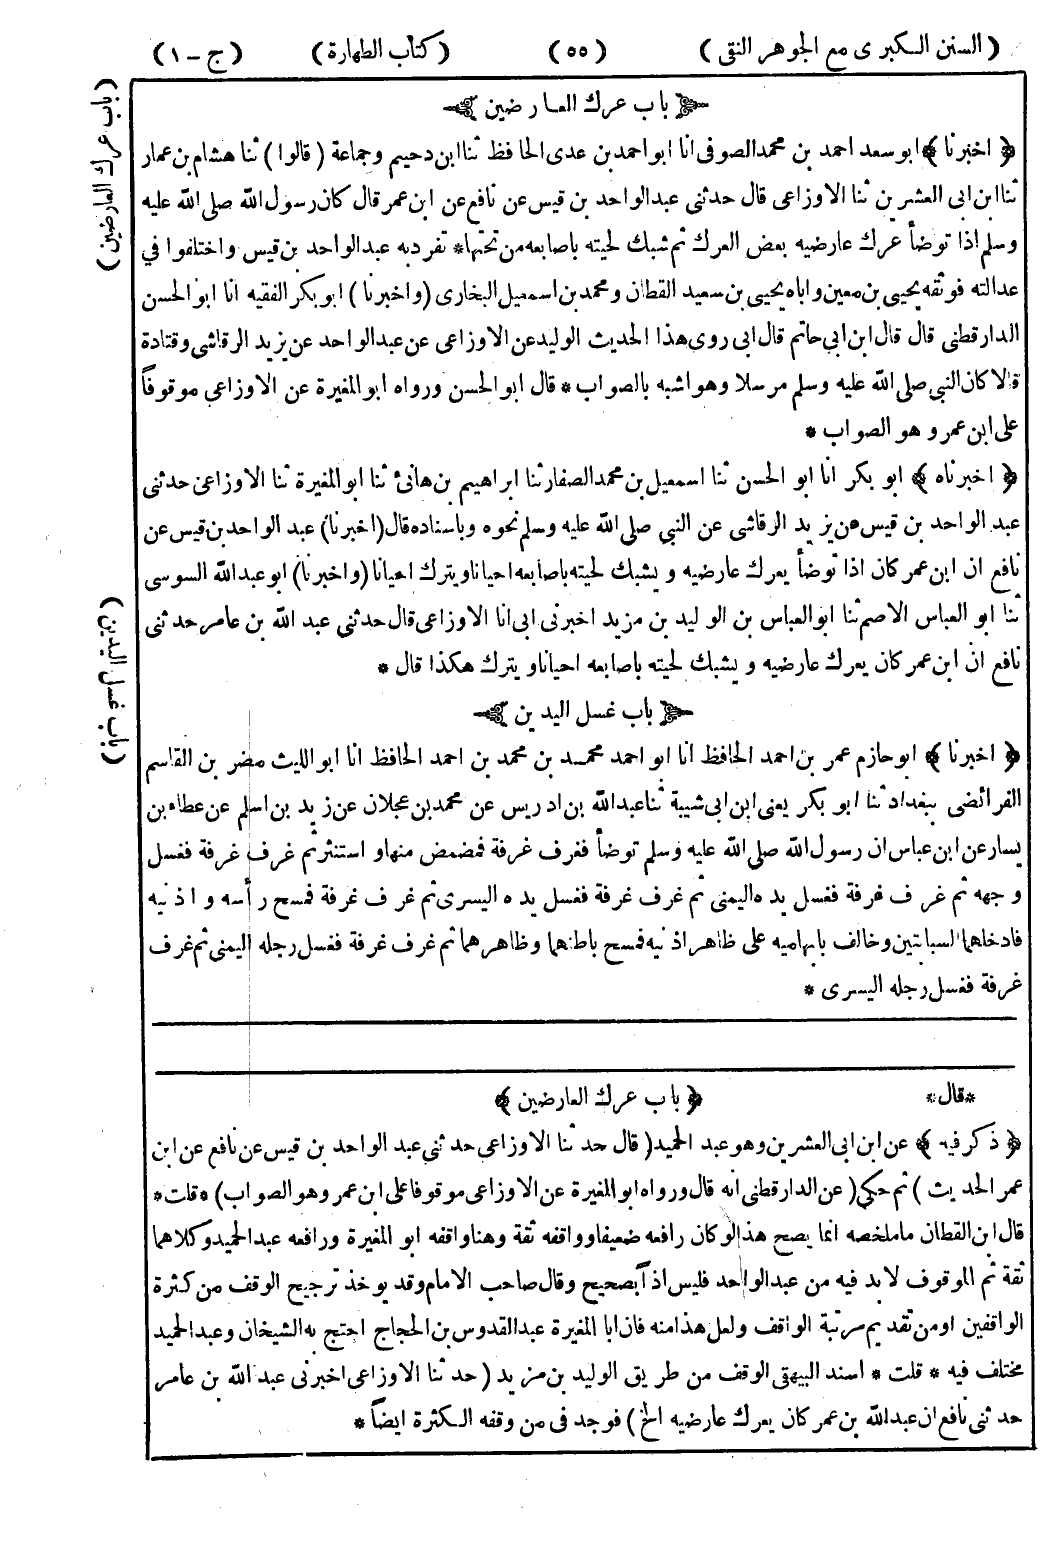 ( السنن الكبرى مع الجوهر النقى ) ( ٥٥ ) ( كتاب الطهارة ) ( ج - ١ )
( باب عرك العارضين )
باب عرك العارضين
﴿ اخبرنا ﴾ ابو سعد احمد بن محمد الصوفى انا ابو احمد بن عدى الحافظ ثنا ابن دحيم وجماعة ( قالوا ) ثنا هشام بن عمار
ثنا ابن ابى العشرين ثنا الاوزاعى قال حدثنى عبد الواحد بن قيس عن نافع عن ابن عمر قال كان رسول الله صلى الله عليه
وسلم اذا توضأ عرك عارضيه بعض العرك ثم شبك لحيته باصابعه من تحتها * تفرد به عبد الواحد بن قيس واختلفوا فى
عدالته فوثقه يحيى بن معين واباه يحيى بن سعيد القطان ومحمد بن اسمعيل البخارى ( واخبرنا ) ابو بكر الفقيه انا ابو الحسن
الدارقطنى قال قال ابن ابى حاتم قال ابى روى هذا الحديث الوليد عن الاوزاعى عن عبد الواحد عن يزيد الرقاشى وقتادة
قالا كان النبى صلى الله عليه وسلم مرسلا وهو اشبه بالصواب * قال ابو الحسن ورواه ابو المغيرة عن الاوزاعى موقوفاً
على ابن عمر وهو الصواب *
﴿ اخبرناه ﴾ ابو بكر انا ابو الحسن ثنا اسمعيل بن محمد الصفار ثنا ابراهيم بن هانئ ثنا ابو المغيرة ثنا الاوزاعى حدثنى
عبد الواحد بن قيس عن يزيد الرقاشى عن النبى صلى الله عليه وسلم نحوه وباسناده قال ( اخبرنا ) عبد الواحد بن قيس عن
نافع ان ابن عمر كان اذا توضأ يعرك عارضيه ويشبك لحيته باصابعه احيانا ويترك احيانا ( واخبرنا ) ابو عبد الله السوسى
ثنا ابو العباس الاصم ثنا ابو العباس بن الوليد بن مزيد اخبرنى ابى انا الاوزاعى قال حدثنى عبد الله بن عامر حدثنى
نافع ان ابن عمر كان يعرك عارضيه ويشبك لحيته باصابعه احيانا ويترك هكذا قال *
( باب غسل اليدين )
باب غسل اليدين
﴿ اخبرنا ﴾ ابو حازم عمر بن احمد الحافظ انا ابو احمد محمد بن محمد بن احمد الحافظ انا ابو الليث مضر بن القاسم
الفرائضى ببغداد ثنا ابو بكر يعنى ابن ابى شيبة ثنا عبد الله بن ادريس عن محمد بن عجلان عن زيد بن اسلم عن عطاء بن
يسار عن ابن عباس ان رسول الله صلى الله عليه وسلم توضأ فغرف غرفة فمضمض منها و استنثر ثم غرف غرفة فغسل
وجهه ثم غرف غرفة فغسل يده اليمنى ثم غرف غرفة فغسل يده اليسرى ثم غرف غرفة فمسح رأسه واذنيه
فادخلهما السبابتين وخالف بابهاميه على ظاهر اذنيه فمسح باطنهما وظاهرهما ثم غرف غرفة فغسل رجله اليمنى ثم غرف
غرفة فغسل رجله اليسرى *
* قال * ﴿ باب عرك العارضين ﴾
﴿ ذكر فيه ﴾ عن ابن ابى العشرين وهو عبد الحميد ( قال حدثنا الاوزاعى حدثنى عبد الواحد بن قيس عن نافع عن ابن
عمر الحديث ) ثم حكى ( عن الدارقطنى انه قال ورواه ابو المغيرة عن الاوزاعى موقوفا على ابن عمر وهو الصواب ) * قلت *
قال ابن القطان ما ملخصه انما يصح هذا لو كان رافعه ضعيفا وواقفه ثقة وهنا واقفه ابو المغيرة ورافعه عبد الحميد وكلاهما
ثقة ثم الموقوف لا بد فيه من عبد الواحد فليس اذاً بصحيح وقال صاحب الامام وقد يوخذ ترجيح الوقف من كثرة
الواقفين او من تقديم مرتبة الواقف ولعل هذا منه فان ابا المغيرة عبد القدوس بن الحجاج احتج به الشيخان وعبد الحميد
مختلف فيه * قلت * اسند البيهقى الوقف من طريق الوليد بن مزيد ( حدثنا الاوزاعى اخبرنى عبد الله بن عامر
حدثنى نافع ان عبد الله بن عمر كان يعرك عارضيه الخ ) فوجد فى من وقفه الكثرة ايضاً *